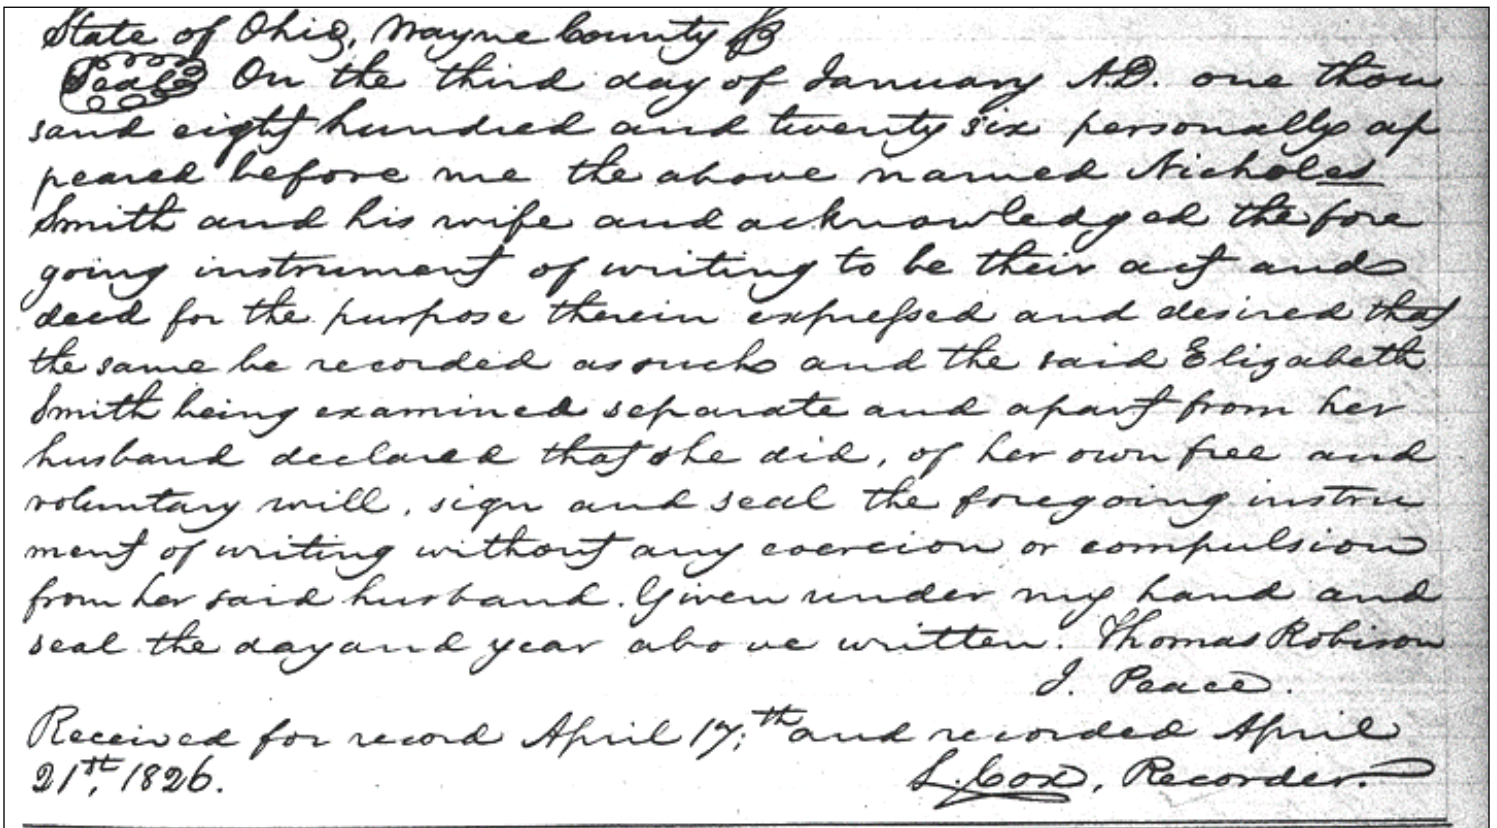 State of Ohio, Wayne County ss
Seal On the third day of January A.D. one thou
sand eight hundred and twenty six personally ap
peared before me the above named Nicholes
Smith and his wife and acknowledged the fore
going instrument of writing to be their act and
deed for the purpose therein expressed and desired that
the same be recorded as such and the said Elizabeth
Smith being examined separate and apart from her
husband declared that she did, of her own free and
voluntary will, sign and seal the foregoing instru
ment of writing without any coercion or compulsion
from her said husband. Given under my hand and
seal the day and year above written. Thomas Robison
J. Peace.
Received for record April 17,th and recorded April
21st, 1826. L. Cox, Recorder.